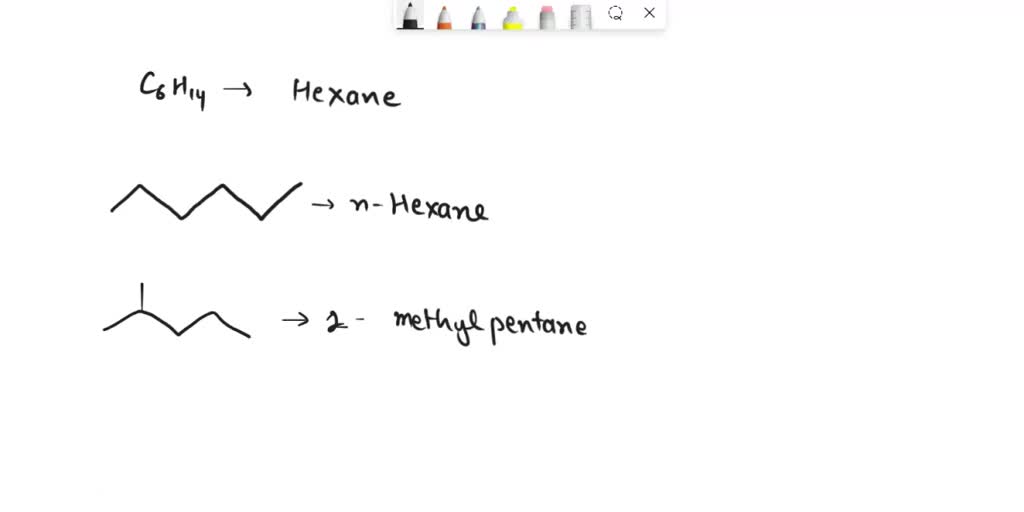 C₆H₁₄ → Hexane
→ n-Hexane
→ 2- methyl pentane